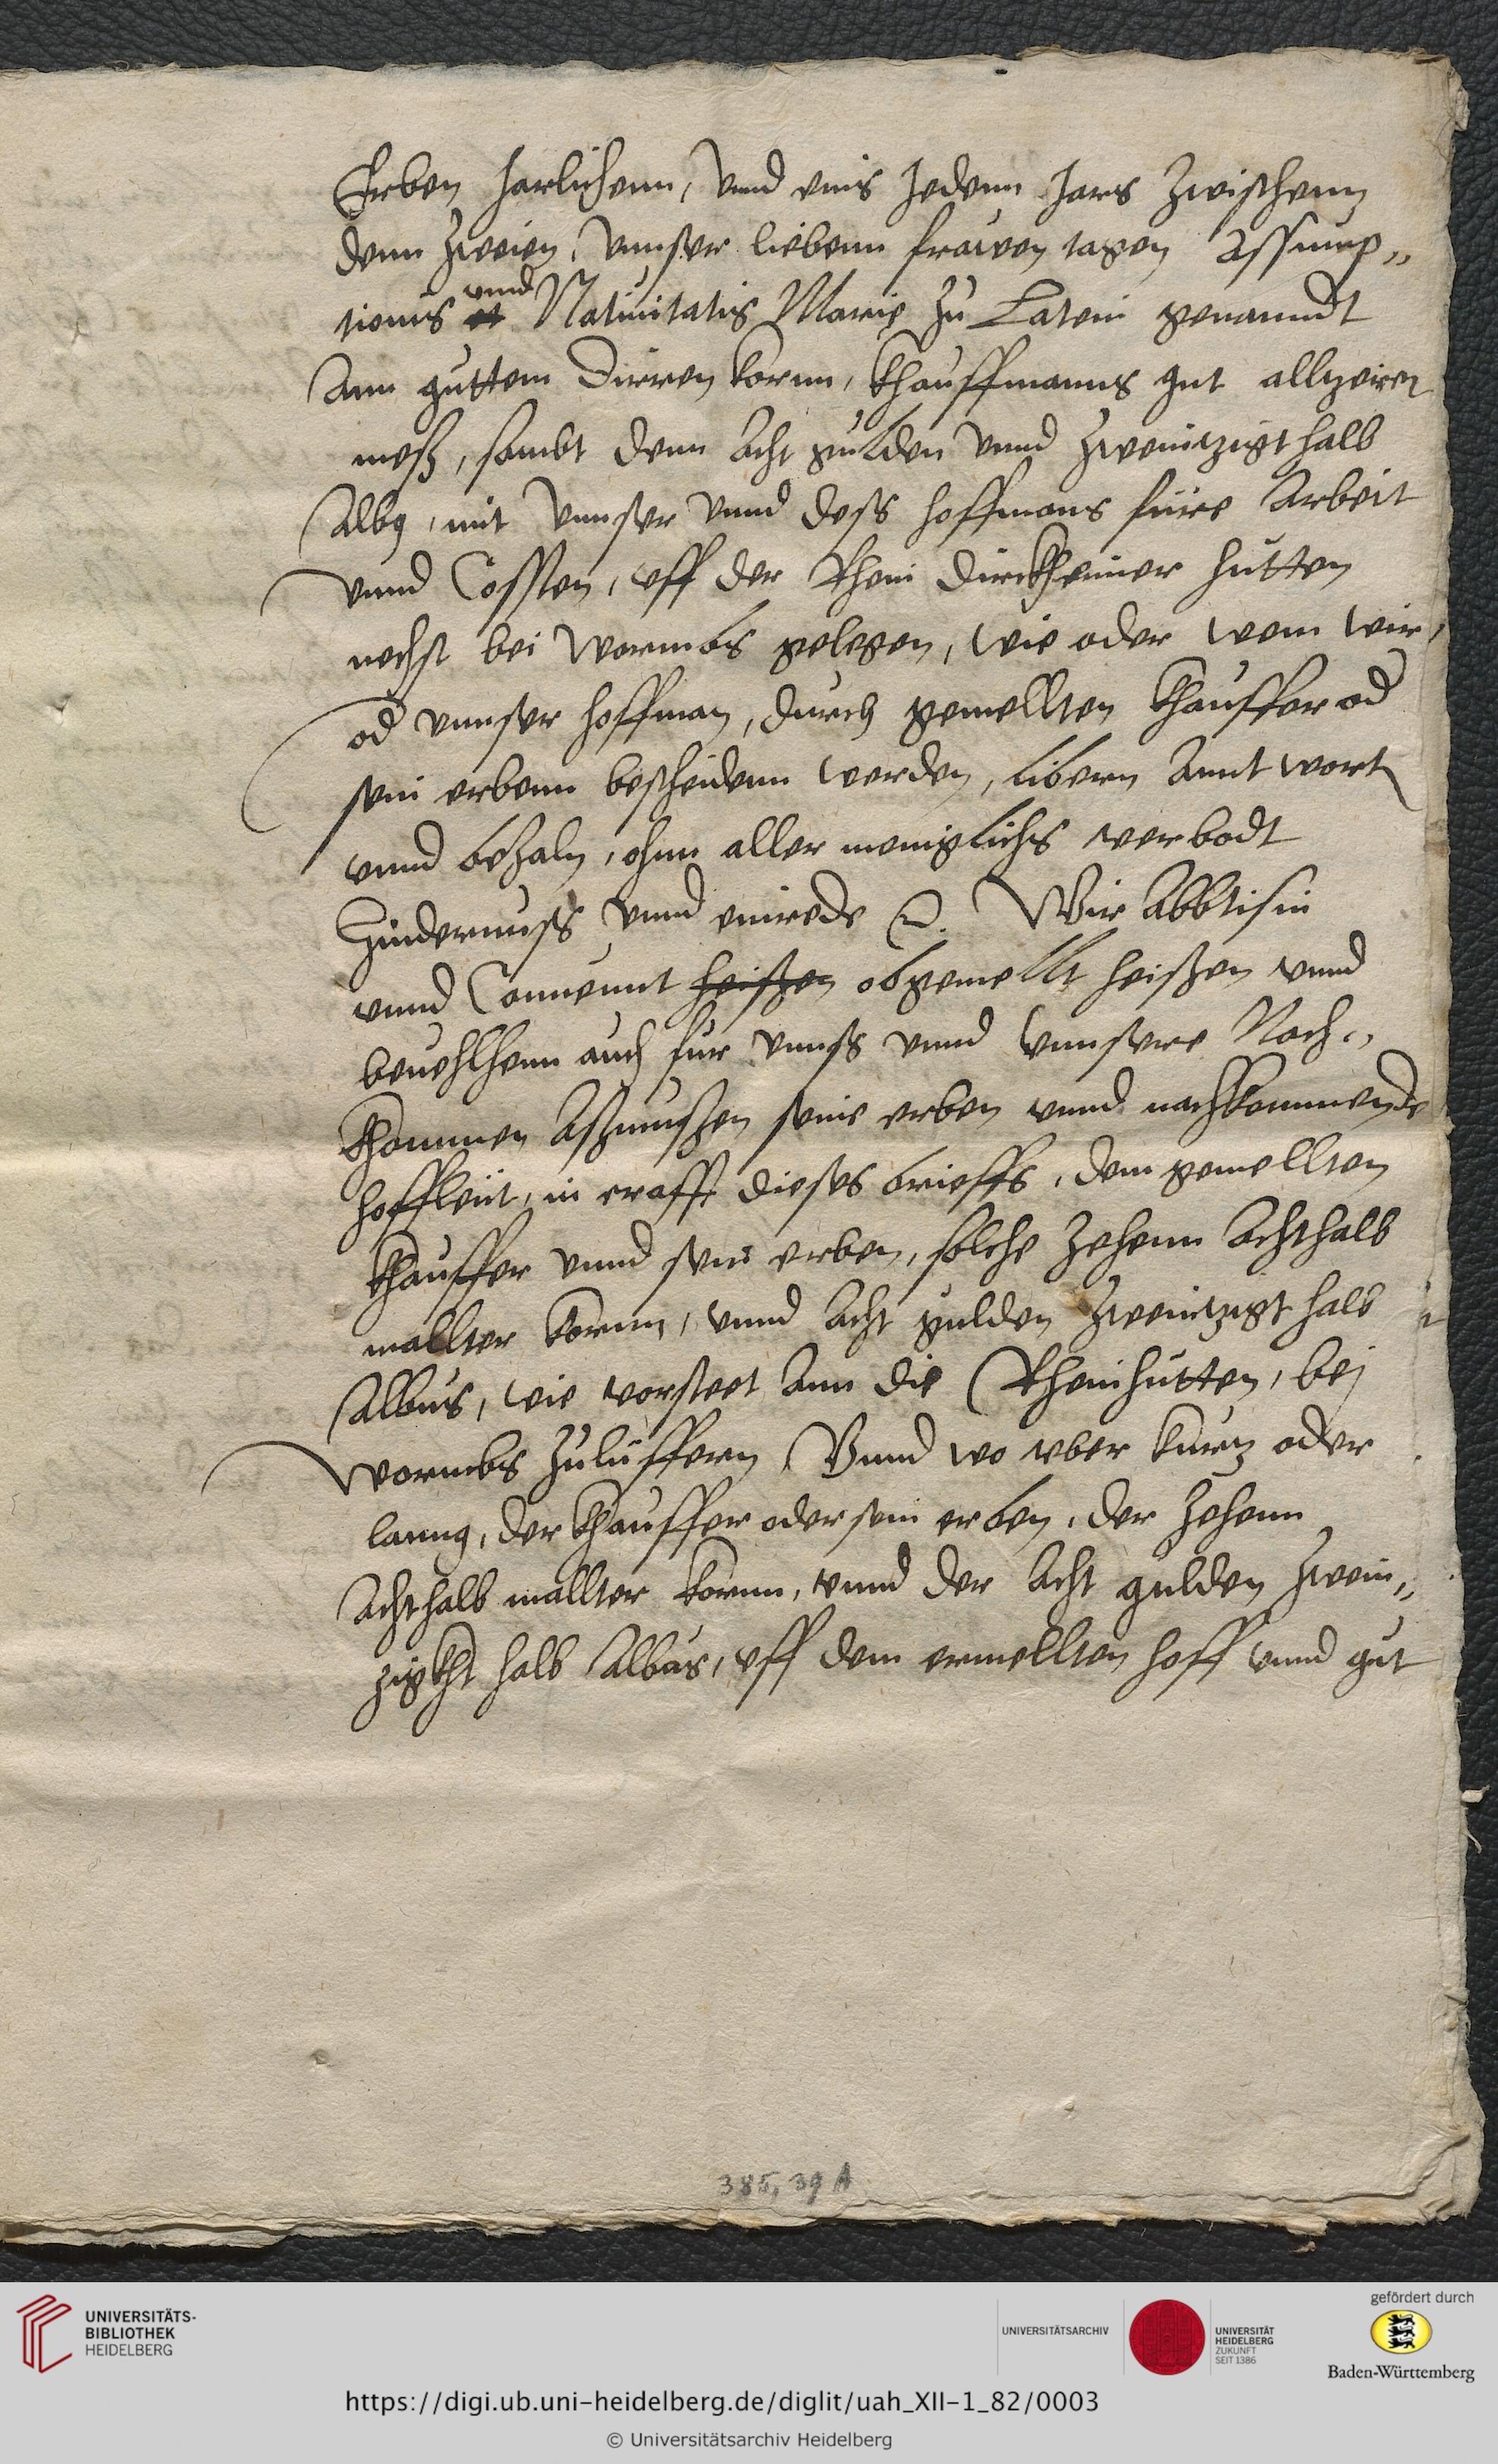 Erben Jarlichenn, vnnd eins Jedenn Jars zwischenn
denn zweien, vnnser liebenn frawen tagen Assump„
tionis et vnnd Natiuitatis Marie zu Latein genanndt
Ann guttem dürren kornn, khauffmanns gut altzeier
meß, sambt denn Acht gulden vnnd zweintzigthalb
Albg, mit vnnser vnnd dess hoffmans füre Arbeit
vnnd Cossten, vff der Rhein dürckheimer hütten
nechst bei wormbs gelegen, wie oder wem wir,
od vnnser hoffman, durch gemellten khauffer od
sein erbenn bescheidenn werden, libern Anntwortn
vnnd bezaln, ohnn aller meniglichs verbodt
Hindernuss vnnd einrede etc. Wir Abbtisin
vnnd Connennt heissen obgemellt heissen vnnd
beuehlhenn auch für vnnss vnnd vnnsere Nach„
khommen Assmussen seine erben vnnd nachkommende
hoffleüt, in crafft dieses brieffs, dem gemellten
khauffer vnnd sein erben, solche zehenn Achthalb
mallter kornn, vnnd Acht gulden zweintzigthalb
Albus, wie vorsteet Ann die Rheinhütten, bej
wormbs zulüffern, Vnnd wo vber kurtz oder
lanng, der khauffer oder sein erben, der zehenn
Achthalb mallter kornn, vnnd der Acht gulden zwein„
zigkht halb Albus, vff dem ermellten hoff vnnd gut
385, 39 A
UNIVERSITÄTS-
BIBLIOTHEK
HEIDELBERG
UNIVERSITÄTSARCHIV
UNIVERSITÄT
HEIDELBERG
ZUKUNFT
SEIT 1386
gefördert durch
Baden-Württemberg
https://digi.ub.uni-heidelberg.de/diglit/uah_XII-1_82/0003
© Universitätsarchiv Heidelberg